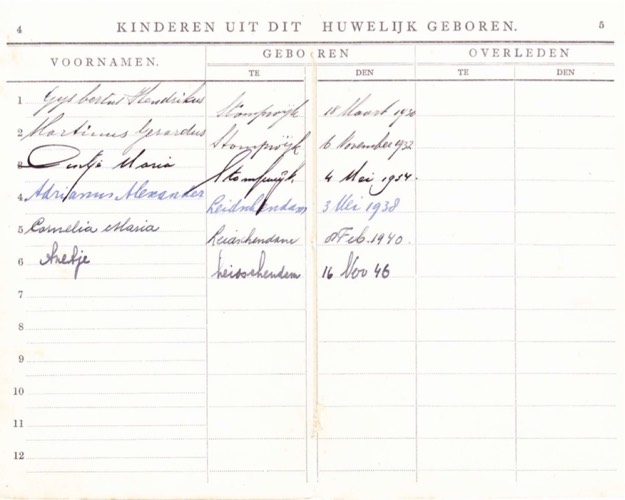 4 KINDEREN UIT DIT HUWELIJK GEBOREN. 5
VOORNAMEN. GEBOREN OVERLEDEN
TE DEN TE DEN
1 Gysbertus Hendrikus Stompwijk 18 Maart 1930
2 Martinus Gerardus Stompwijk 6 November 1932
3 Maria Stompwijk 4 Mei 1934.
4 Adrianus Alexander Leidschendam 3 Mei 1938
5 Cornelia Maria Leidschendam Feb. 1940.
6 Anetje Leidschendam 16 Nov 46
7
8
9
10
11
12